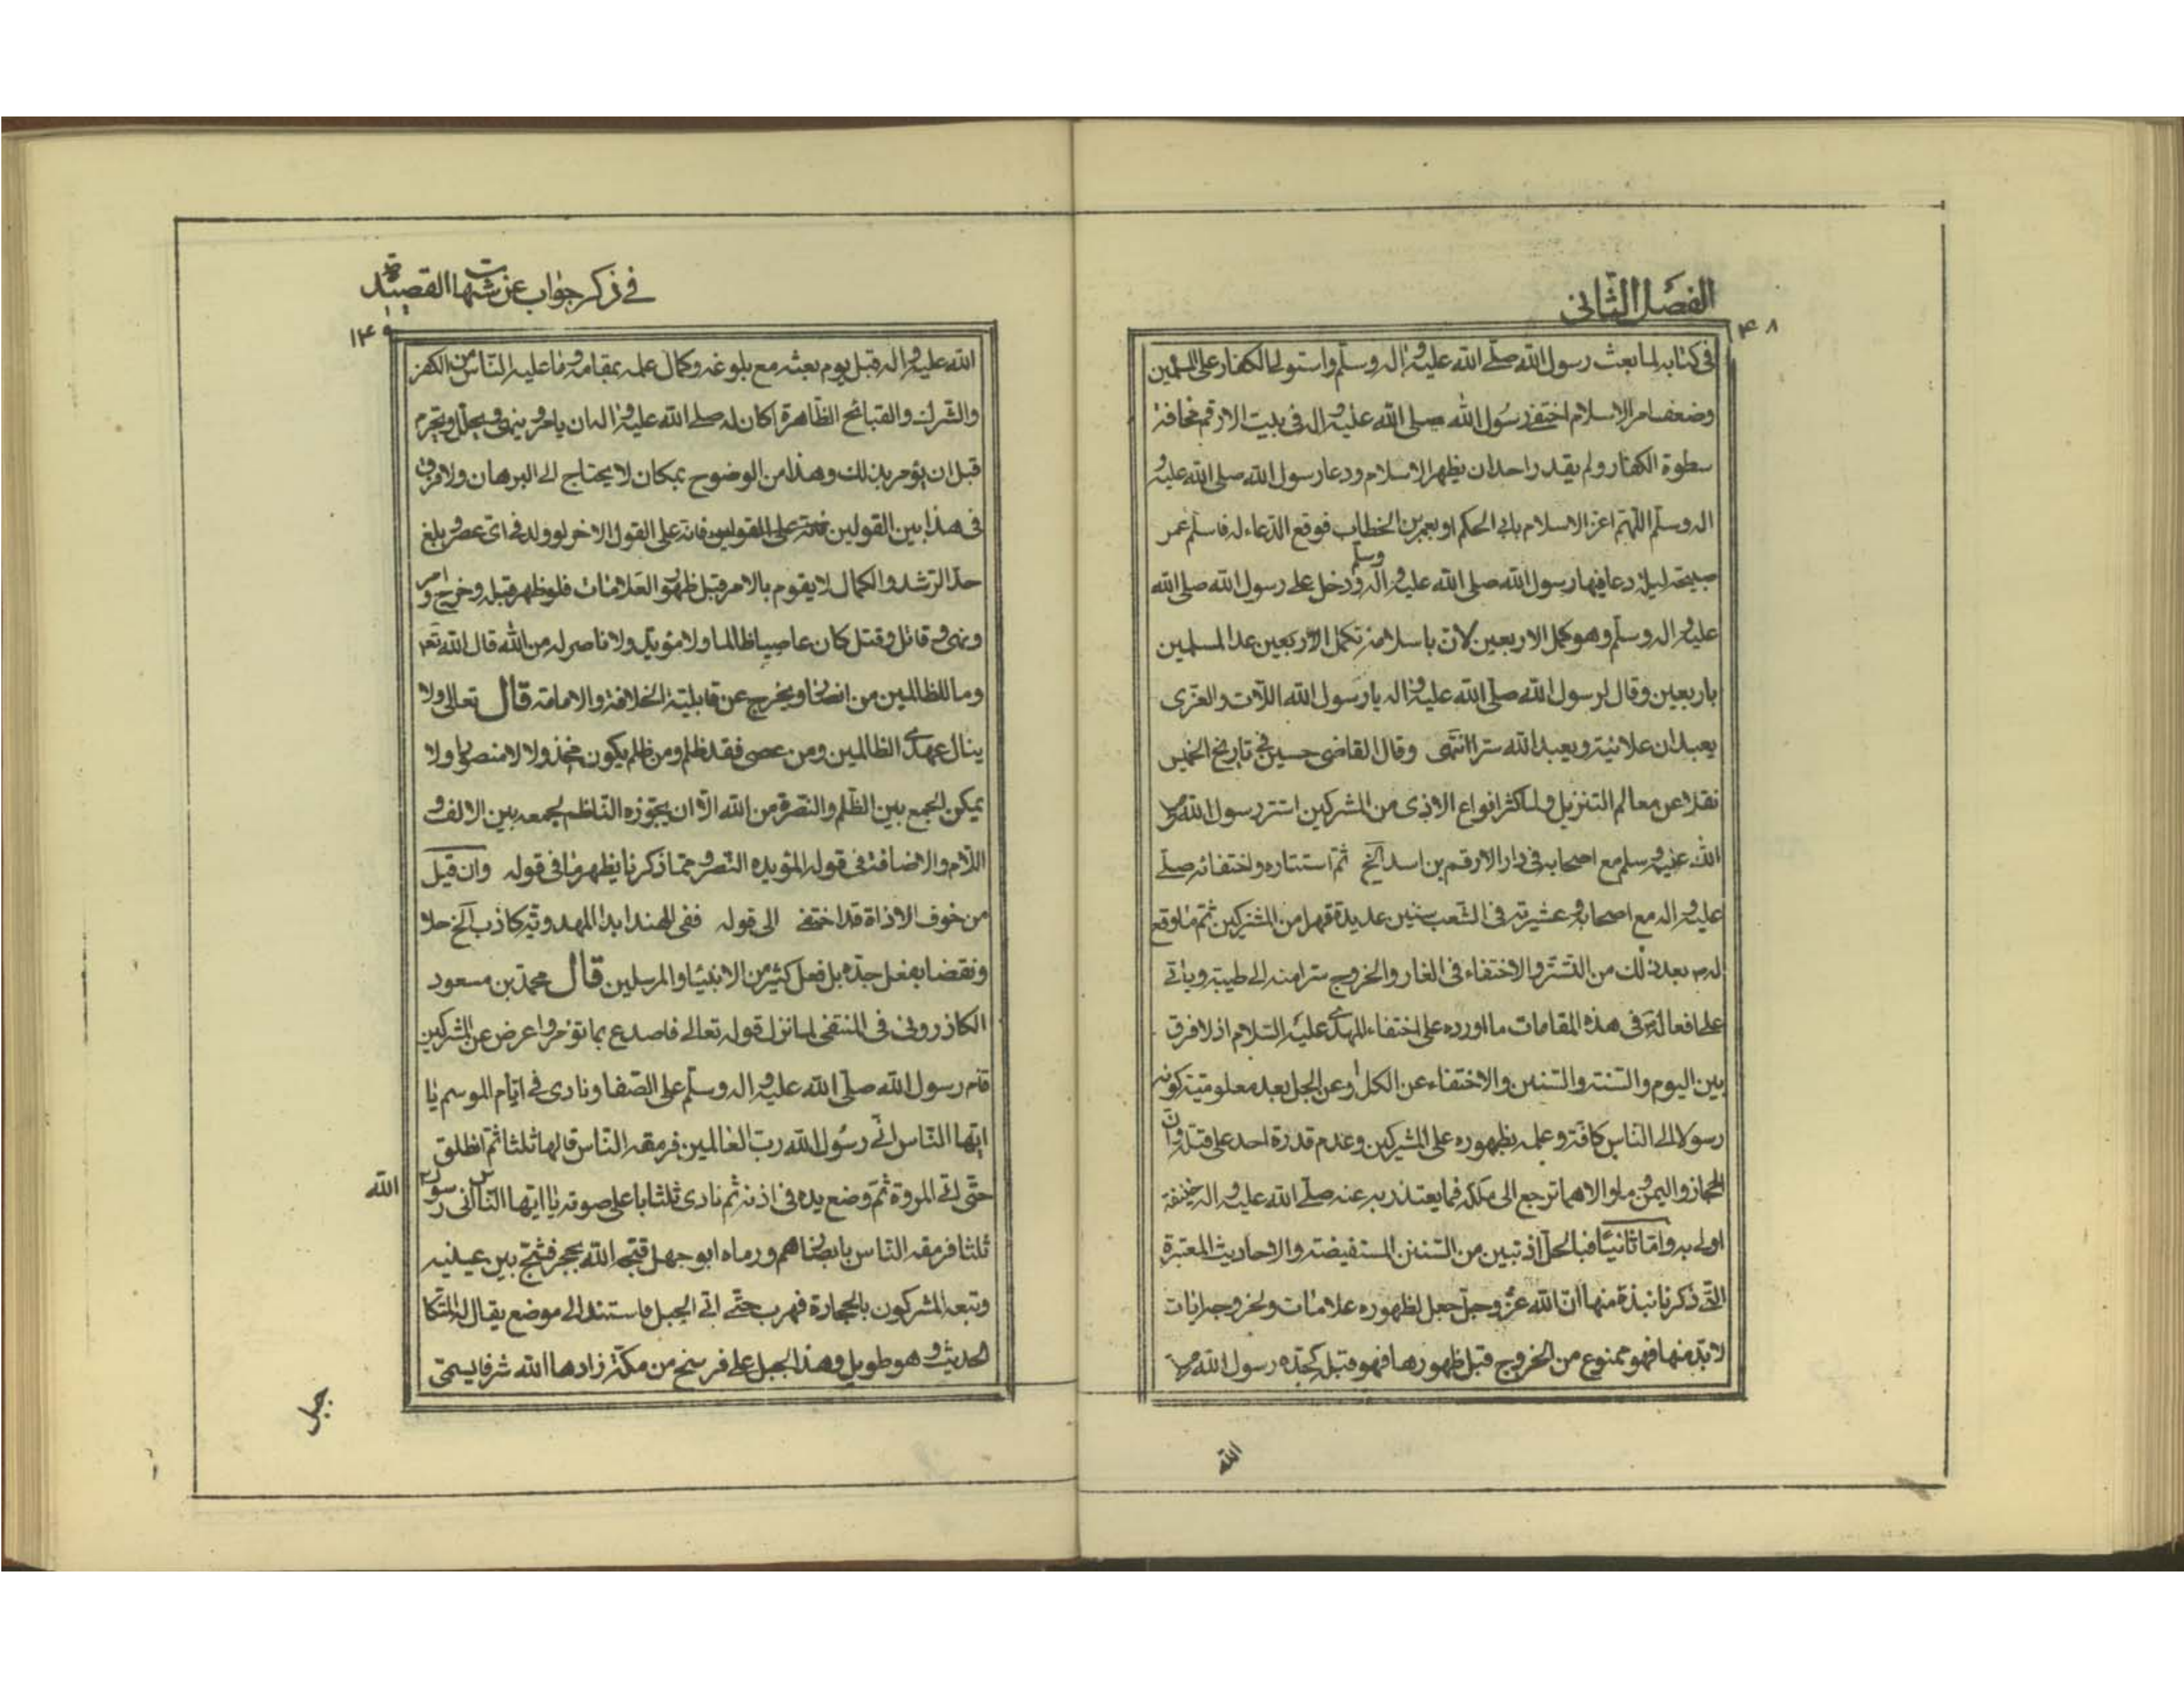 الفصل الثانى
۴۸
فى كتابه لما بعث رسول الله صلى الله عليه واله وسلم واستولى الكفار على المسلمين
وضعف امر الاسلام اختفى رسول الله صلى الله عليه واله فى بيت الارقم مخافة
سطوة الكفار ولم يقدر احد ان يظهر الاسلام ودعا رسول الله صلى الله عليه و
اله وسلم اللهم اعز الاسلام بابى الحكم او بعمر بن الخطاب فوقع الدعاء له فاسلم عمر
صبيحة ليلة دعا فيها رسول الله صلى الله عليه واله وسلم ودخل على رسول الله صلى الله
عليه واله وسلم وهو كمل الاربعين لان باسلامه تكمل الاربعين عدا لمسلمين
باربعين وقال لرسول الله صلى الله عليه واله يا رسول الله اللات والعزى
يعبدان علانية ويعبد الله سرا انتهى وقال القاضى حسين فى تاريخ الخميس
نقلا عن معالم التنزيل ولما كثر انواع الاذى من المشركين استتر رسول الله صلى
الله عليه وسلم مع اصحابه فى دار الارقم بن اسد الخ ثم استتاره واختفائه صلى
عليه واله مع اصحابه وعشيرته فى الشعب سنين عديدة قهرا من المشركين ثم ما وقع
له ص بعد ذلك من التستر والاختفاء فى الغار والخروج سرا منه الى طيبة وياتى
على افعاله ص فى هذه المقامات ما اورده على اختفاء المهدى عليه السلام اذ لا فرق
بين اليوم والسنة والسنين والاختفاء عن الكل او عن الجل بعد معلومية كونه
رسولا الى الناس كافة وعلمه بظهوره على المشركين وعدم قدرة احد على قتله وان
الحجاز واليمن وما والاهما ترجع الى ملكه فما يعتذر به عنه صلى الله عليه واله خليفة
اولى به واما ثانيا فبالحل اذ تبين من السنن المستفيضة والاحاديث المعتبرة
التى ذكرنا نبذة منها ان الله عز وجل جعل لظهوره علامات ولخروجه ايات
لا بد منها فهو ممنوع من الخروج قبل ظهورها فهو قبل كجده رسول الله صلى
الله
فى ذكر جواب عن شبهات القصيدة
۱۴۹
الله عليه واله قبل يوم بعثه مع بلوغه وكمال علمه بمقامه وما عليه الناس من الكفر
والشرك والقبائح الظاهرة اكان له صلى الله عليه واله ان يامر وينهى ويحلل ويحرم
قبل ان يؤمر بذلك وهذا من الوضوح بمكان لا يحتاج الى البرهان ولا فرق
فى هذا بين القولين فانه على القولين فانه على القول الاخر لو ولد فى اى عصر وبلغ
حد الرشد والكمال لا يقوم بالامر قبل ظهور العلامات فلو ظهر قبله وخرج وامر
ونهى وقاتل وقتل كان عاصيا ظالما ولا مؤيد ولا ناصر له من الله قال الله تعه
وما للظالمين من انصار ويخرج عن قابلية الخلافة والامامة قال تعالى ولا
ينال عهدى الظالمين ومن عصى فقد ظلم ومن ظلم يكون مخذولا لا منصورا ولا
يمكن الجمع بين الظلم والنصرة من الله الا ان يجوزه الناظم لجمعه بين الالف و
اللام والاضافة فى قوله المؤيده النصر ومما ذكرنا يظهر ما فى قوله وان قيل
من خوف الاذاة قد اختفى الى قوله ففى الهند ابدا المهدوية كاذب الخ حلا
ونقضا بفعل جده بل فعل كثير من الانبياء والمرسلين قال محمد بن مسعود
الكازرونى فى المنتقى لما نزل قوله تعالى فاصدع بما تؤمر واعرض عن المشركين
قام رسول الله صلى الله عليه واله وسلم على الصفا ونادى فى ايام الموسم يا
ايها الناس انى رسول الله رب العالمين فرمقه الناس قالها ثلثا ثم انطلق
حتى اتى المروة ثم وضع يده فى اذنه ثم نادى ثلثا باعلى صوته يا ايها الناس انى رسول الله
ثلثا فرمقه الناس بابصارهم ورماه ابو جهل قبحه الله بحجر فشج بين عينيه
وتبعه المشركون بالحجارة فهرب حتى اتى الجبل فاستند الى موضع يقال له المتكا
الحديث وهو طويل وهذا الجبل على فرسخ من مكة زادها الله شرفا يسمى
جبل